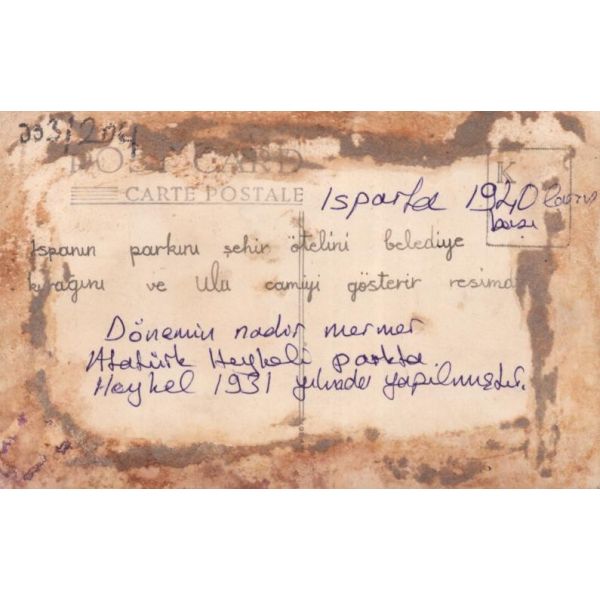 333/204
POST CARD
CARTE POSTALE
K
Isparta 1940 ların
başı
Ispanın parkını şehir otelini belediye
kırağını ve Ulu camiyi gösterir resimd
Dönemin nadir mermer
Atatürk Heykeli parkta
Heykel 1931 yılında yapılmıştır.